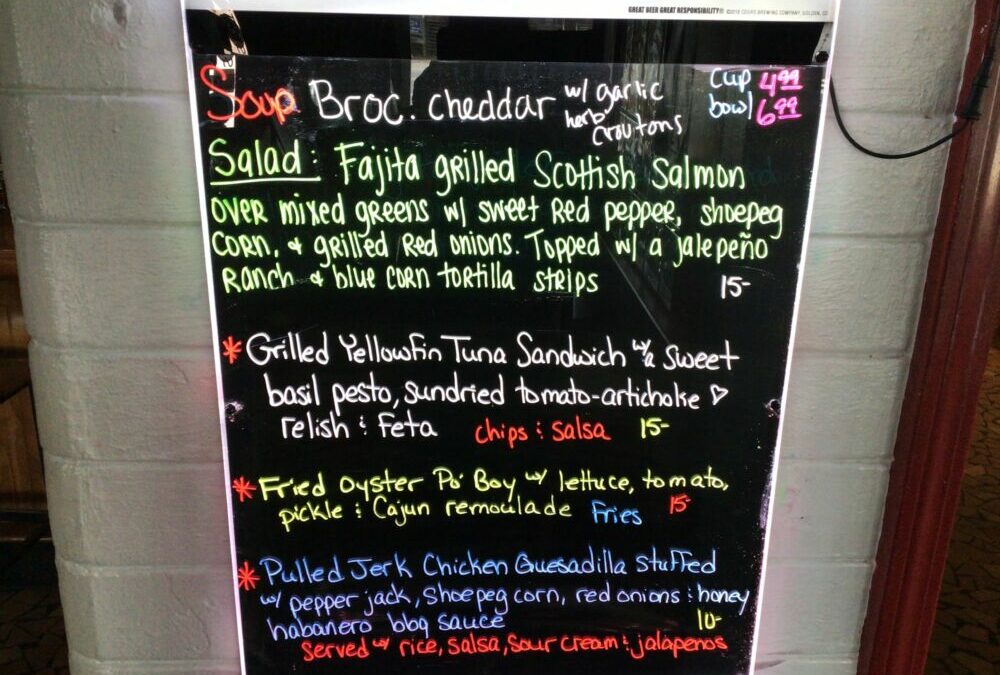 GREAT BEER GREAT RESPONSIBILITY® ©2012 COORS BREWING COMPANY, GOLDEN, CO
Soup Broc. cheddar w/ garlic herb croutons cup 4.99 bowl 6.99
Salad: Fajita grilled Scottish Salmon
over mixed greens w/ sweet Red pepper, shoepeg
corn, & grilled Red onions. Topped w/ a jalepeño
Ranch & blue corn tortilla strips 15-
* Grilled Yellowfin Tuna Sandwich w/ a sweet
basil pesto, sundried tomato-artichoke
relish & Feta chips & salsa 15-
* Fried Oyster Po' Boy w/ lettuce, tomato,
pickle & Cajun remoulade Fries 15-
* Pulled Jerk Chicken Quesadilla stuffed
w/ pepper jack, shoepeg corn, red onions & honey
habanero bbq sauce 10-
served w/ rice, salsa, sour cream & jalapenos